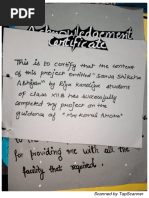 Acknowledgement
Certificate
This is to certify that the content
of this project entitled "Sarva Shiksha
Abhiyan" by Riya Kanaujiya students
of class XII B has successfully
completed my project on the
guidance of
for providing me with all the
facility that required.
Scanned by TapScanner